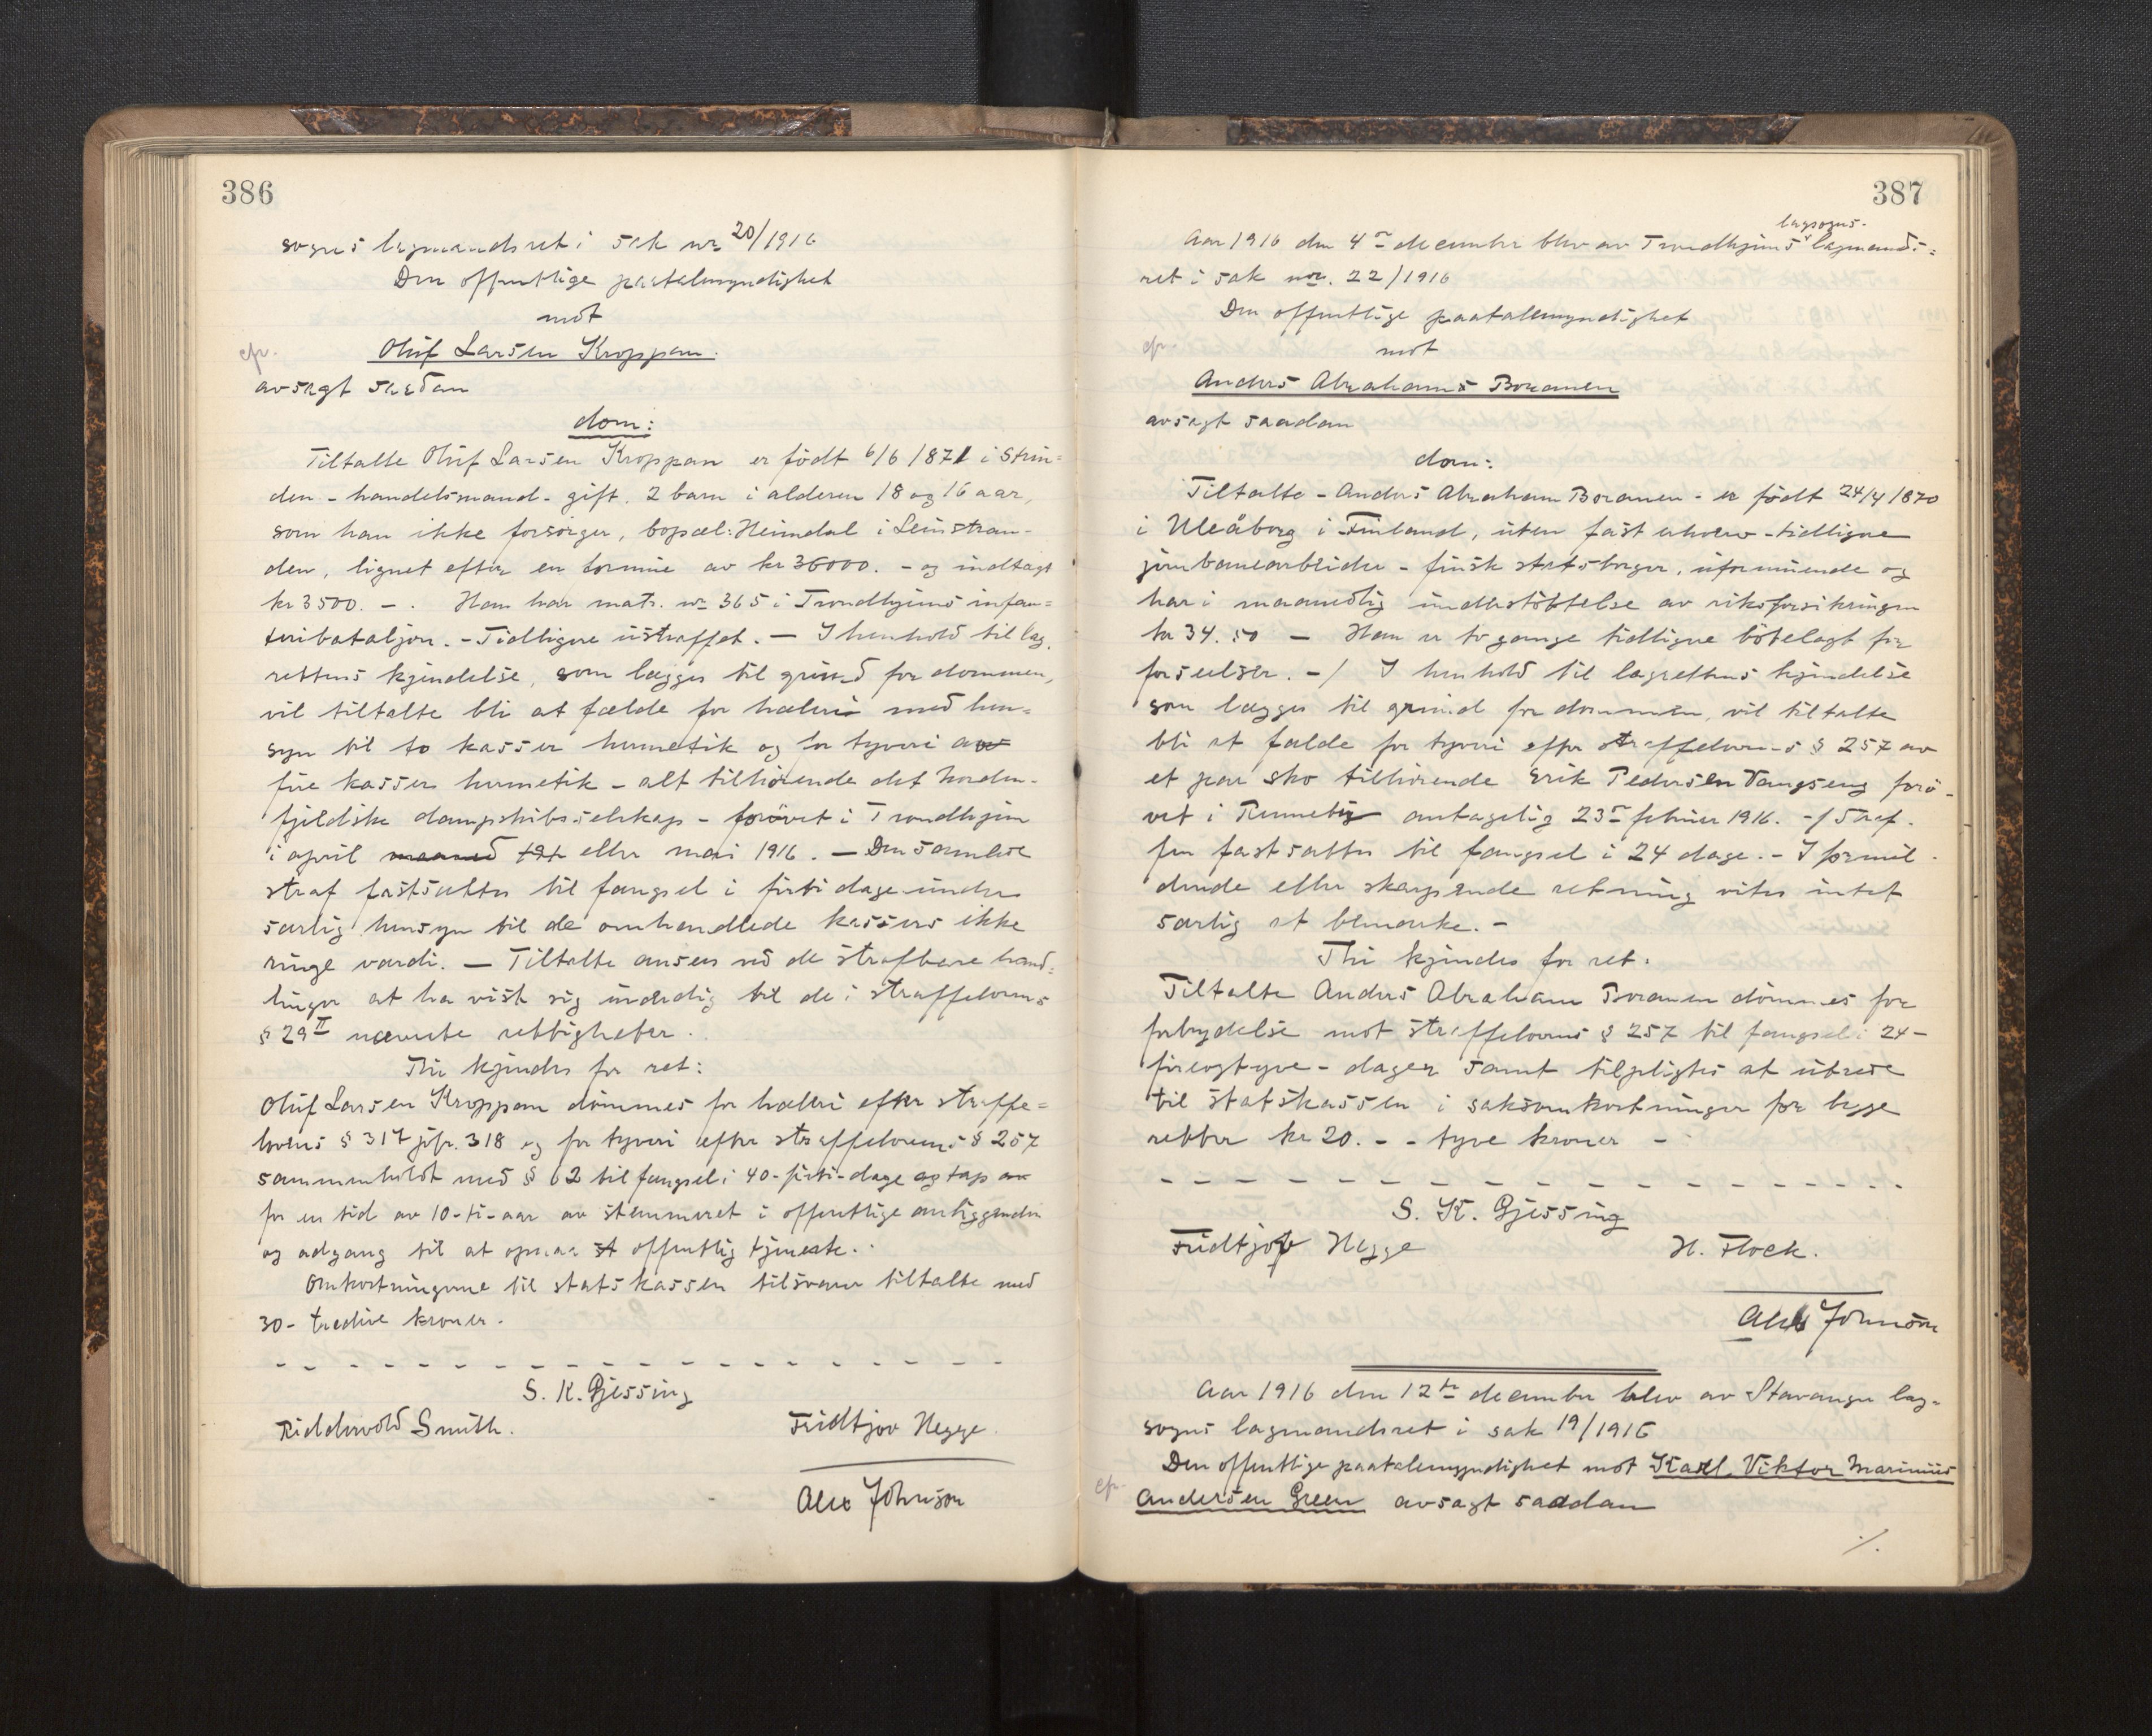 386
sogns lagmandsret i sak nr 20/1916
Den offentlige paatalemyndighet
mot
cfr.
Oluf Larsen Kroppan.
avsagt saadan
dom:
Tiltalte Oluf Larsen Kroppan er født 6/6 1871 i Strin=
den - handelsmand - gift. 2 barn i alderen 18 og 16 aar,
som han ikke forsørger, bopæl: Heimdal i Leinstran-
den, lignet efter en formue av kr 36000. - og indtægt
kr 3500. - . Han har matr. nr 365 i Trondhjems infan=
teribataljon. - Tidligere ustraffet. - I henhold til lag.
rettens kjendelse, som lægges til grund for dommen,
vil tiltalte bli at fælde for hæleri med hen=
syn til to kasser hermetik og for tyveri av
fire kasser hermetik - alt tilhørende det norden-
fjeldske dampskibsselskap - forøvet i Trondhjem
i april maaned eller mai 1916. - Den samlede
straf fastsættes til fængsel i førti dage under
særlig hensyn til de omhandlede kassers ikke
ringe værdi. - Tiltalte ansees ved de strafbare hand=
linger at ha vist sig uværdig til de i straffelovens
§ 29 II nævnte rettigheter.
Thi kjendes for ret:
Oluf Larsen Kroppan dømmes for hæleri efter straffe=
lovens § 317 jfr. 318 og for tyveri efter straffelovens § 257
sammenholdt med § 62 til fængsel i 40-førti-dage og tap
for en tid av 10-ti-aar av stemmeret i offentlige anliggender
og adgang til at opnaa offentlig tjeneste.
Omkostningerne til statskassen tilsvarer tiltalte med
30- tredive kroner.
- - - - - - - - - - - - - - - - - -
S. K. Gjessing
Riddervold Smith.
Fridtjov Hegge.
Alex Johnson
387
lagsogns.
Aar 1916 den 4de december blev av Trondhjems lagmands=
ret i sak nr. 22/1916
Den offentlige paatalemyndighet
cfr.
mot
Anders Abrahams Boranen
avsagt saadan
dom:
Tiltalte - Anders Abraham Boranen - er født 24/4 1870
i Uleåborg i Finland, uten fast erhverv - tidligere
jernbanearbeider - finsk statsborger, uformuende og
har i maanedlig understøttelse av riksforsikringen
kr 34.50 - Han er to gange tidligere bøtelagt for
forseelser. -/ I henhold til lagrettens kjendelse
som lægges til grund for dommen, vil tiltalte
bli at fælde for tyveri efter straffelovens § 257 av
et par sko tilhørende Erik Pedersen Vangseng forø-
vet i antagelig 23de februar 1916. -/ Straf.
fen fastsættes til fængsel i 24 dage. - I formil-
dende eller skjærpende retning vites intet
særlig at bemerke. -
Thi kjendes for ret:
Tiltalte Anders Abraham Boranen dømmes for
forbrydelse mot straffelovens § 257 til fængsel i 24-
fireogtyve - dager samt tilpligtes at utrede
til statskassen i saksomkostninger for begge
retter kr 20. - - tyve kroner -
- - - - - - - - - - - - - - - - -
S. K. Gjessing
Fridtjof Hegge
H. Flock.
Alex Johnson
Aar 1916 den 12te december blev av Stavanger lag=
sogns lagmandsret i sak 19/1916
Den offentlige paatalemyndighet mot Karl Viktor Marinius
cfr.
Andersen Green avsagt saadan
./.